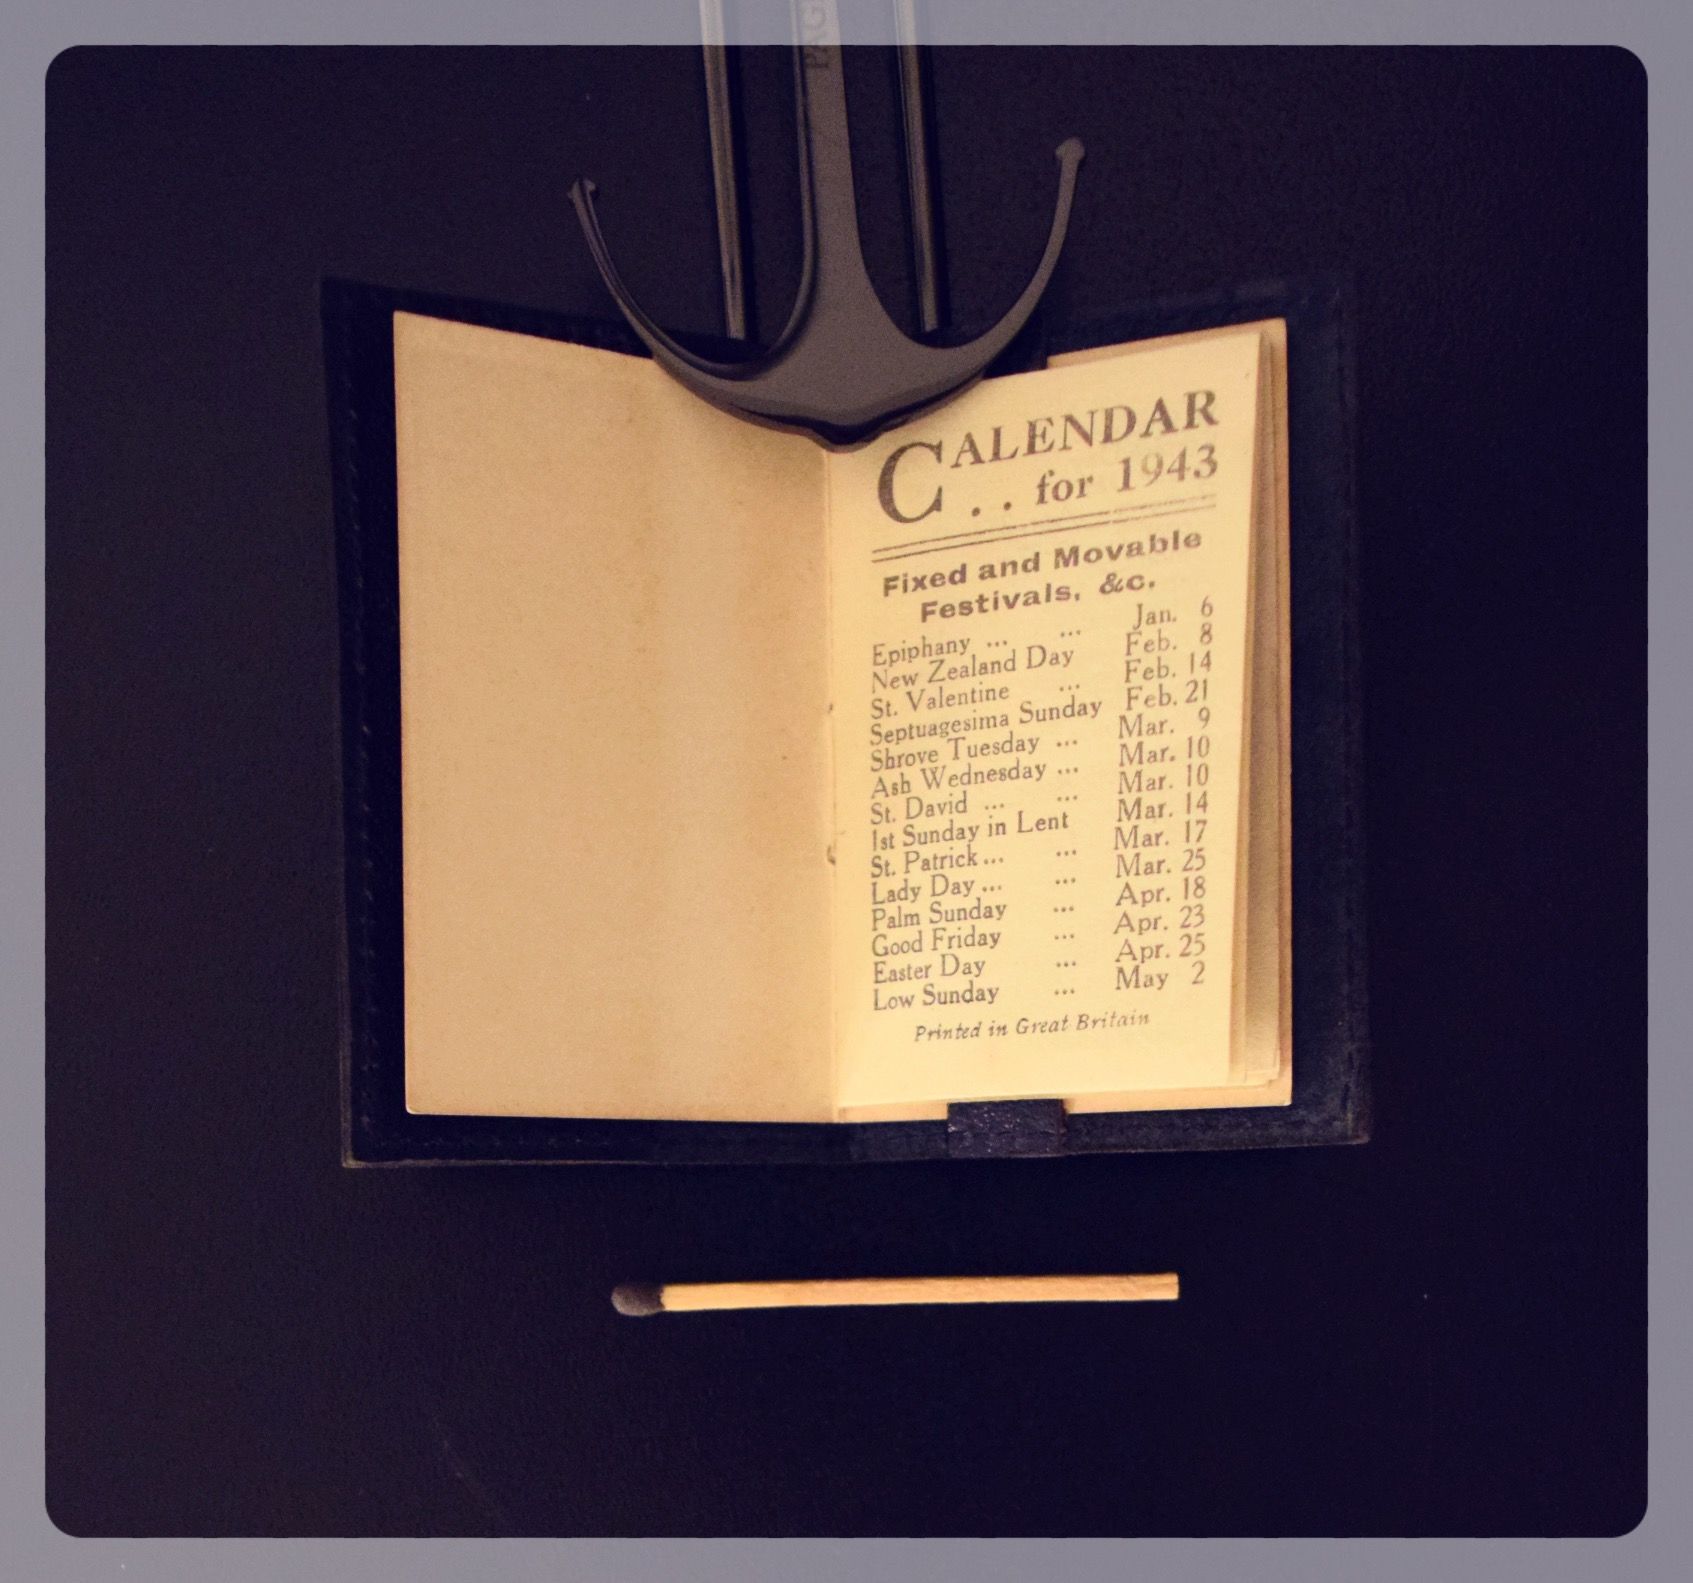 PAG
CALENDAR
. . for 1943
Fixed and Movable
Festivals, &c.
Epiphany ... ... Jan. 6
New Zealand Day Feb. 8
St. Valentine ... Feb. 14
Septuagesima Sunday Feb. 21
Shrove Tuesday ... Mar. 9
Ash Wednesday ... Mar. 10
St. David ... ... Mar. 10
1st Sunday in Lent Mar. 14
St. Patrick ... ... Mar. 17
Lady Day ... ... Mar. 25
Palm Sunday ... Apr. 18
Good Friday ... Apr. 23
Easter Day ... Apr. 25
Low Sunday ... May 2
Printed in Great Britain